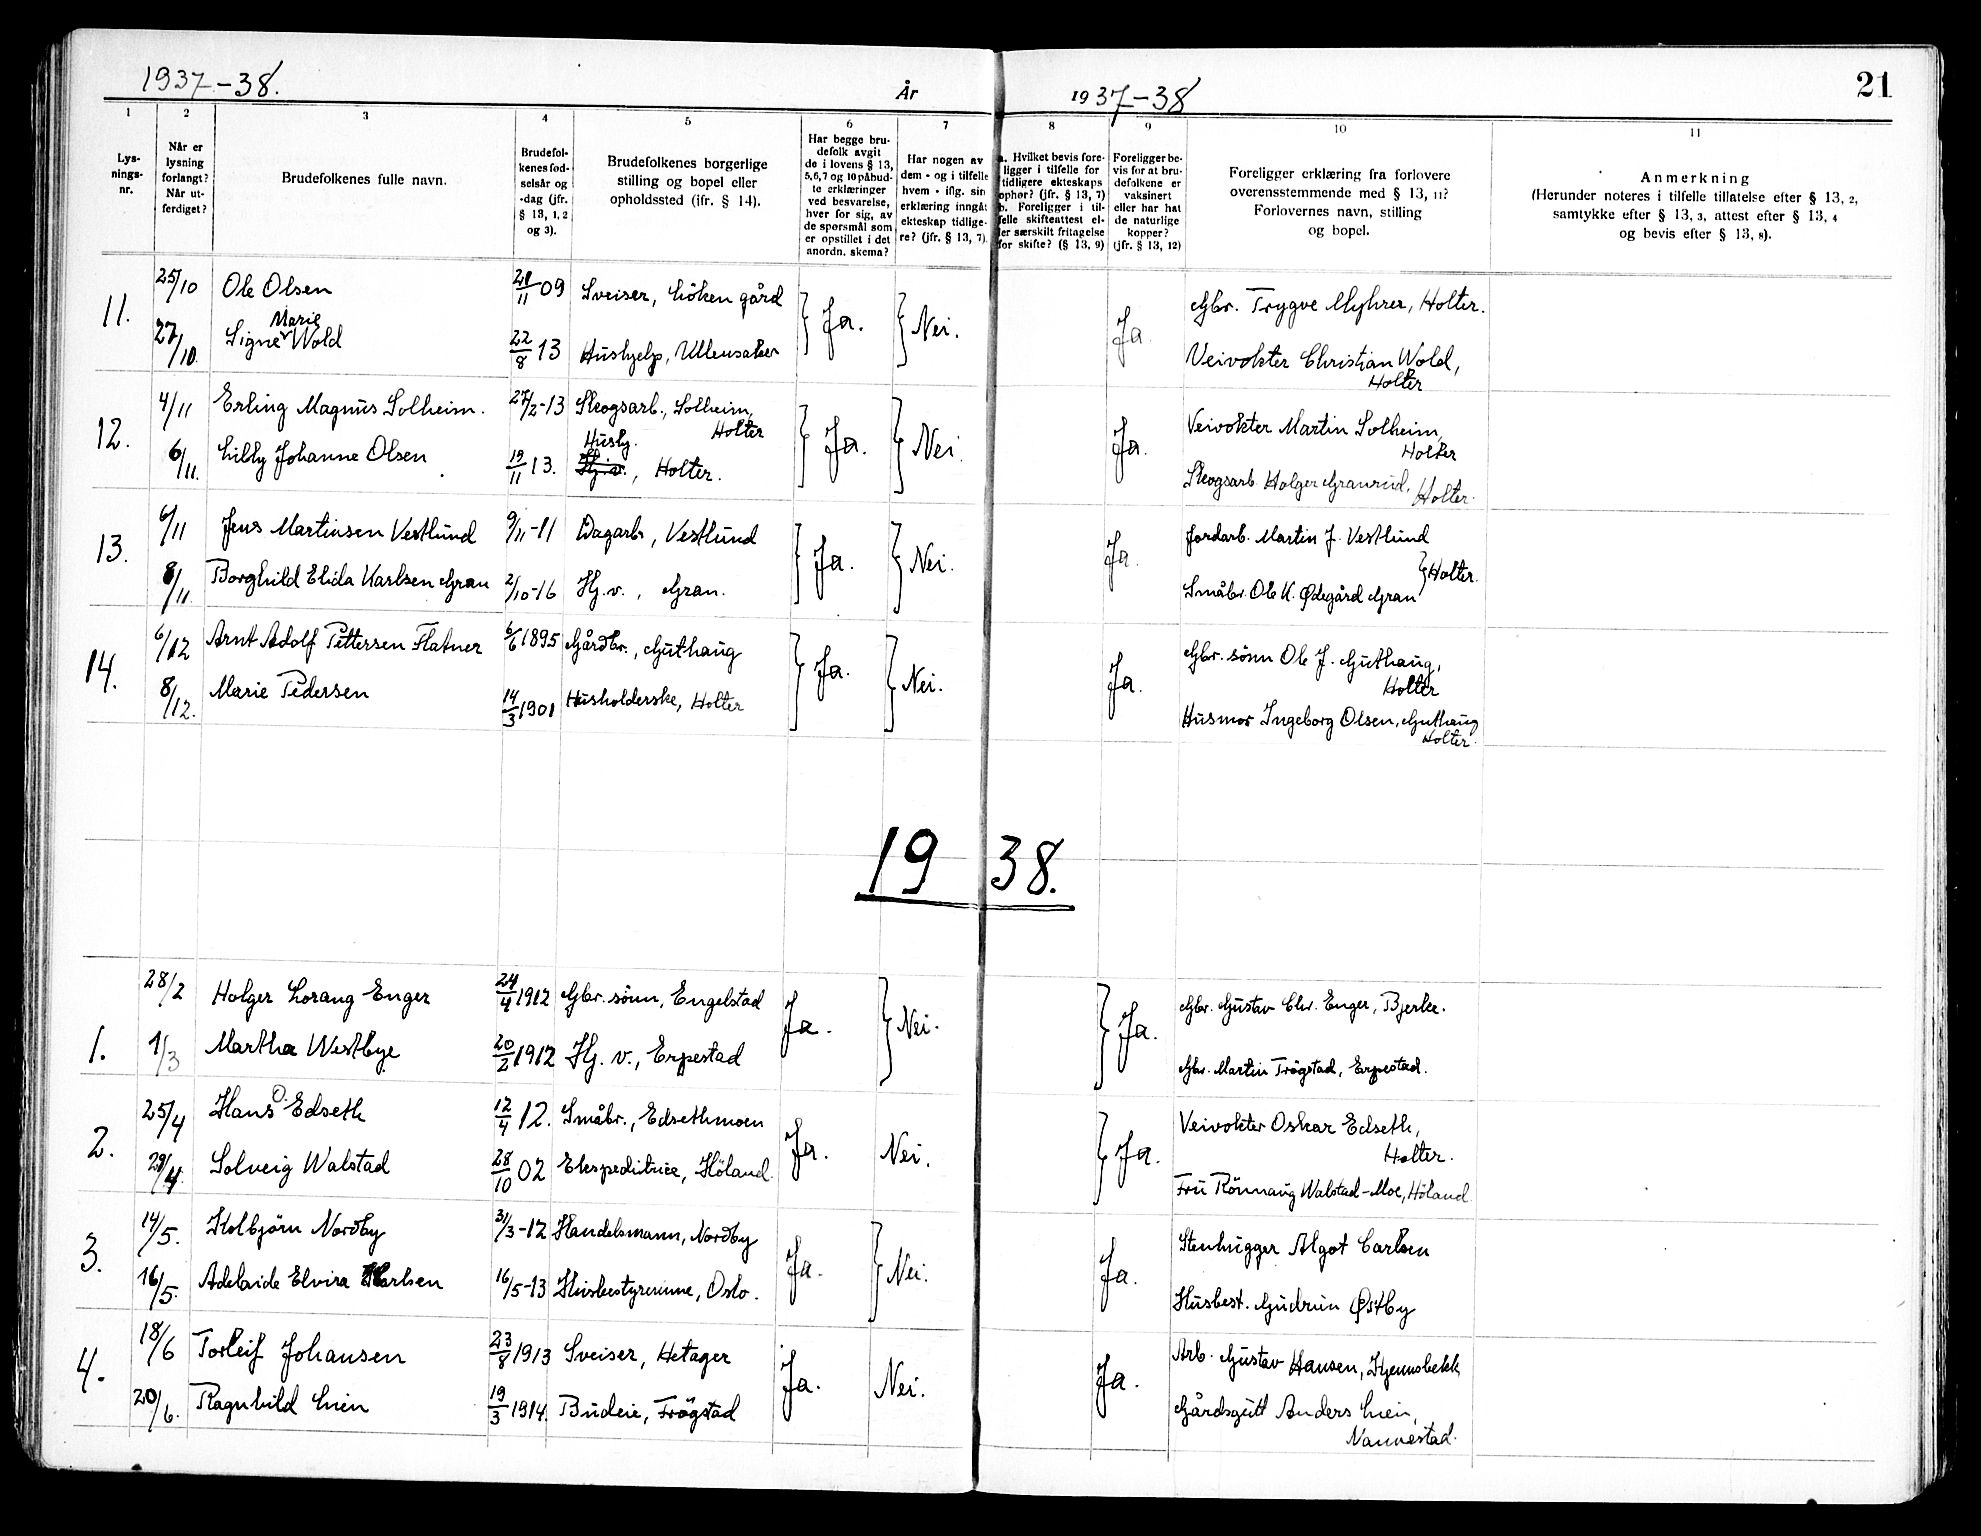 1937-38.
År
1937-38
21
1
2
3
4
5
6
7
8
9
10
11
Lys-
nings-
nr.
Når er
lysning
forlangt?
Når ut-
ferdiget?
Brudefolkenes fulle navn.
Brudefol-
kenes fød-
selsår og
-dag (jfr.
§ 13, 1, 2
og 3).
Brudefolkenes borgerlige
stilling og bopel eller
opholdssted (jfr. § 14).
Har begge bru-
defolk avgit
de i lovens § 13,
5, 6, 7 og 10 påbud-
te erklæringer
ved besvarelse,
hver for sig, av
de spørsmål som
er opstillet i det
anordn. skema?
Har nogen av
dem - og i tilfelle
hvem - iflg. sin
erklæring inngåt
ekteskap tidlige-
re? (jfr. § 13, 7).
a. Hvilket bevis fore-
ligger i tilfelle for
tidligere ekteskaps
ophør? (jfr. § 13, 7)
b. Foreligger i til-
felle skifteattest el-
ler særskilt fritagelse
for skifte? (§ 13, 9)
Foreligger be-
vis for at bru-
defolkene er
vaksinert
eller har hat
de naturlige
kopper?
(jfr. § 13, 12)
Foreligger erklæring fra forlovere
overensstemmende med § 13, 11?
Forlovernes navn, stilling
og bopel.
Anmerkning
(Herunder noteres i tilfelle tillatelse efter § 13, 2,
samtykke efter § 13, 3, attest efter § 13, 4
og bevis efter § 13, 8).
11.
25/10 Ole Olsen 21/11 09 Sveiser, Löken gård Ja. Nei. Ja. Gbr. Trygve Myhrer, Holter.
Marie
27/10. Signe Wold 22/8 13 Hushjelp, Ullensaker Veivokter Christian Wold,
Holter
12.
4/11 Erling Magnus Solheim. 27/2-13 Skogsarb., Solheim, Ja. Nei. Ja. Veivokter Martin Solheim,
Holter Holter
Hushj.
6/11. Lilly Johanne Olsen 19/11 13. Hj.v., Holter. Skogsarb. Holger Granrud, Holter.
13.
6/11 Jens Martinsen Vestlund 9/11-11 Dagarb, Vestlund Ja. Nei. Ja. Jordarb. Martin J. Vestlund
Holter.
8/11. Borghild Elida Karlsen Gran 2/10-16 Hj.v., Gran. Småbr. Ole K. Ødegård Gran
14.
6/12 Arnt Adolf Pettersen Flatner 6/6 1895 Gårdbr., Guthaug Ja. Nei. Ja. Gbr. sönn Ole J. Guthaug,
Holter
8/12. Marie Pedersen 14/3 1901 Husholderske, Holter Husmor Ingeborg Olsen, Guthaug
Holter.
1938.
28/2 Holger Lorang Enger 24/4 1912 Gbr. sönn, Engelstad Ja. Nei. Ja. Gbr. Gustav Chr. Enger, Bjerke.
1.
1/3 Martha Westbye 20/2 1912 Hj. v., Erpestad Gbr. Martin Trögstad, Erpestad.
25/4 Hans O. Edseth 12/4 12. Småbr., Edsethmoen Ja. Nei. Ja. Veivokter Oskar Edseth,
2. Holter.
29/4. Solveig Walstad 28/10 02 Ekspeditrice, Höland. Fru Rönnaug Walstad-Moe, Höland
14/5. Kolbjørn Nordby 31/3-12 Handelsmann, Nordby Ja. Nei. Ja. Stenhugger Algot Carlsen
3.
16/5. Adelaide Elvira Karlsen 16/5-13 Husbestyrerinne, Oslo. Husbest. Gudrun Østby
18/6 Torleif Johansen 23/8 1913 Sveiser, Hetager Ja. Nei. Ja. Arb. Gustav Hansen, Kjennsbekk
4.
20/6. Ragnhild Lien 19/3 1914. Budeie, Trögstad Gårdsgutt Anders Lien,
Nannestad.